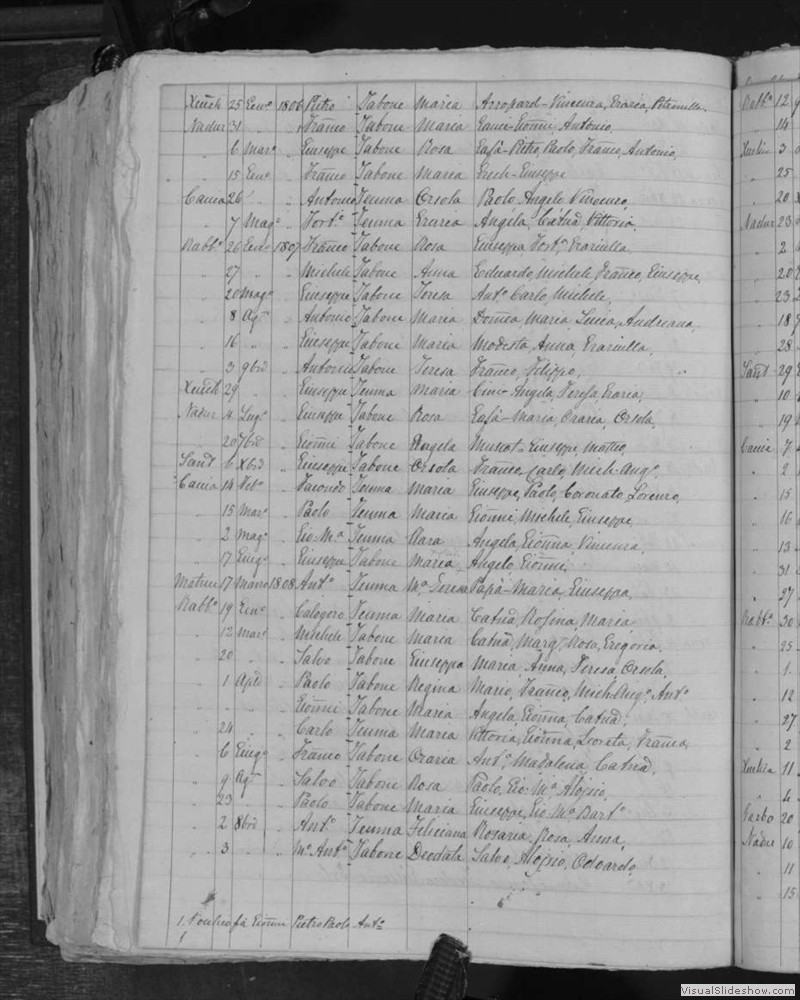 Xeuch 25 Enro 1806 Pietro Tabone Maria Arropard-Vincenza, Grazia, Petronilla
Nadur 31 " " Franco Tabone Maria Gauci-Gionni, Antonio,
" 6 Marzo " Giuseppe Tabone Rosa Pietro, Paolo, Franco, Antonio,
" 15 Enro " Franco Tabone Maria Grech-Giuseppe
Caccia 26 " " Antonio Temma Orsola Paolo, Angelo, Vincenzo,
" 7 Mago " Forto Temma Grazia Angela, Catna, Vittoria,
Rabbo 26 Enro 1807 Franco Tabone Rosa Giuseppa, Forta, Graziulla
" 27 " " Michele Tabone Anna Eduardo, Michele, Franco, Giuseppe,
" 20 Mago " Giuseppe Tabone Teresa Anto, Carlo, Michele,
" 8 Ago " Antonio Tabone Maria Domca, Maria, Lucia, Andreana,
" 16 " " Giuseppe Tabone Maria Modesta, Anna, Graziulla,
" 3 9bre " Antonio Tabone Teresa Franco, Filippo,
Xeuch 29 " " Giuseppe Temma Maria Angela, Teresa, Grazia,
Nadur 4 " Giuseppe Tabone Rosa Maria, Orazia, Orsola,
" 20 7bre " Gionni Tabone Angela Muscat-Giuseppe, Matteo,
Sant 6 Xbre " Giuseppe Tabone Orsola Franco, Carlo, Mich-Ango,
Caccia 14 " Temma Maria Giuseppe, Paolo, Coronato, Lorenzo,
" 15 Marzo " Paolo Temma Maria Gionni, Michele, Giuseppe,
" 2 Mago " Gio: Ma Temma Clara Angela, Gionna, Vincenza,
" 7 Giugo " Giuseppe Tabone Maria Angelo, Gionni,
17 Marzo 1808 Anto Temma Ma Teresa Maria, Giuseppa,
Rabbo 19 Enro " Calogero Temma Maria Catna, Rosina, Maria
" 12 Marzo " Michele Tabone Maria Catna, Marga, Rosa, Gregoria,
" 20 " " Salvo Tabone Giuseppa Maria Anna, Teresa, Orsola,
" 1 Aple " Paolo Tabone Regina Mario, Franco, Mich-Ango, Anto
" " " Gionni Tabone Maria Angela, Gionna, Catna,
" 24 " " Carlo Temma Maria Vittoria, Gionna, Loreta, Franca,
" 6 Giugo " Franco Tabone Orazia Anta, Madalena, Catna,
" 9 Ago " Salvo Tabone Rosa Paolo, Gio: Ma, Aloisio,
" 23 " Paolo Tabone Maria Giuseppe, Gio: Ma, Barto
" 2 8bre " Anto Temma Feliciana Rosaria, Rosa, Anna,
" 3 " " Ma Anto Tabone Deodata Salvo, Aloisio, Odoardo,
1. Gionni Pietro Paolo Anto
Rabbo 12
14
3
25
20
Nadur 23
2
20
23
18
28
Sant 29
10
19
Caccia 7
2
15
16
13
31
27
Rabbo 30
25
1
12
27
2
11
4
Garbo 20
Nadur 10
11
15
VisualSlideshow.com